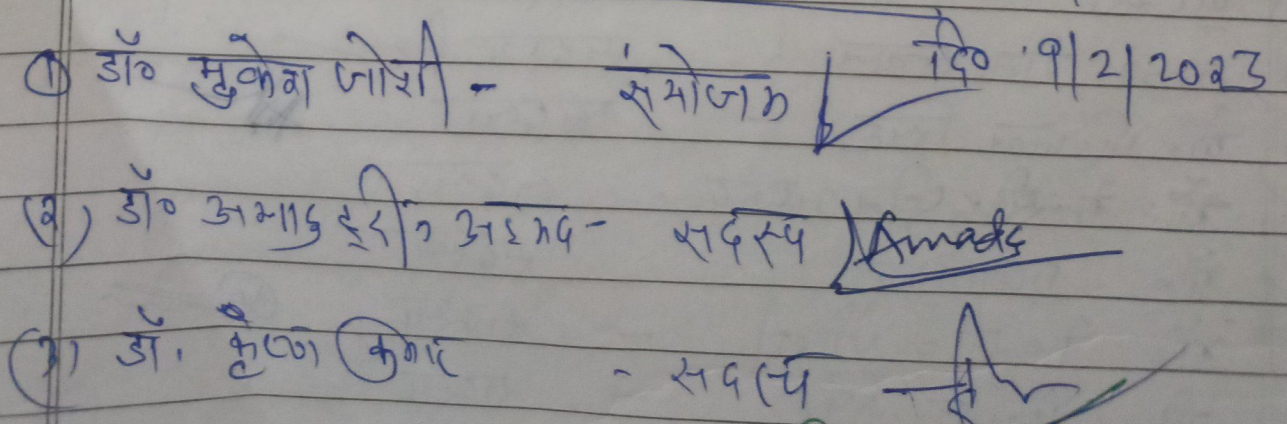 ① डॉ० मुकेश जोशी - संयोजक दि० 9/2/2023
(२) डॉ० अमादुद्दीन अहमद - सदस्य Amads
(३) डॉ. कृष्ण कुमार - सदस्य